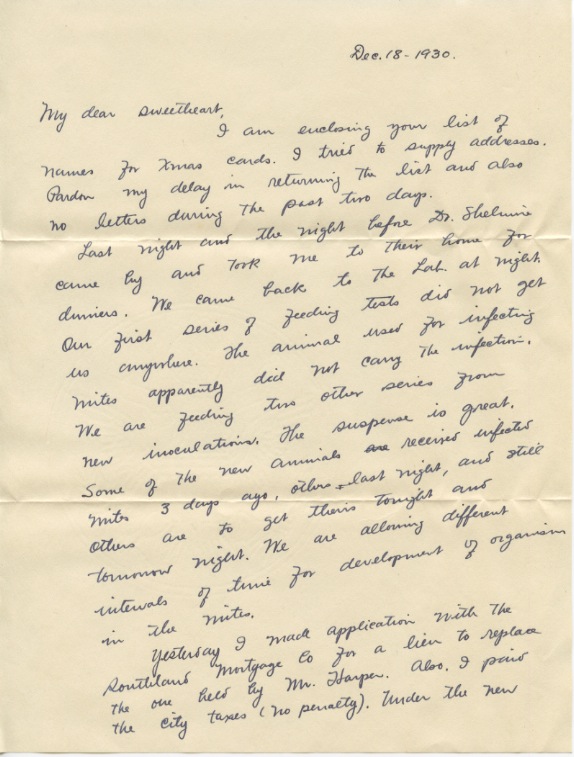 Dec. 18 - 1930.
My dear sweetheart,
I am enclosing your list of
names for Xmas cards. I tried to supply addresses.
Pardon my delay in returning the list and also
no letters during the past two days.
Last night and the night before Dr. Shelmire
came by and took me to their home for
dinners. We came back to the Lab. at night.
Our first series of feeding tests did not get
us anywhere. The animal used for infecting
mites apparently did not carry the infection.
We are feeding two other series from
new inoculations. The suspense is great.
Some of the new animals received infected
mites 3 days ago, others last night, and still
others are to get theirs tonight and
tomorrow night. We are allowing different
intervals of time for development of organism
in the mites.
Yesterday I made application with the
Southland Mortgage Co for a lien to replace
the one held by Mr. Harper. Also, I paid
the city taxes (no penalty). Under the new